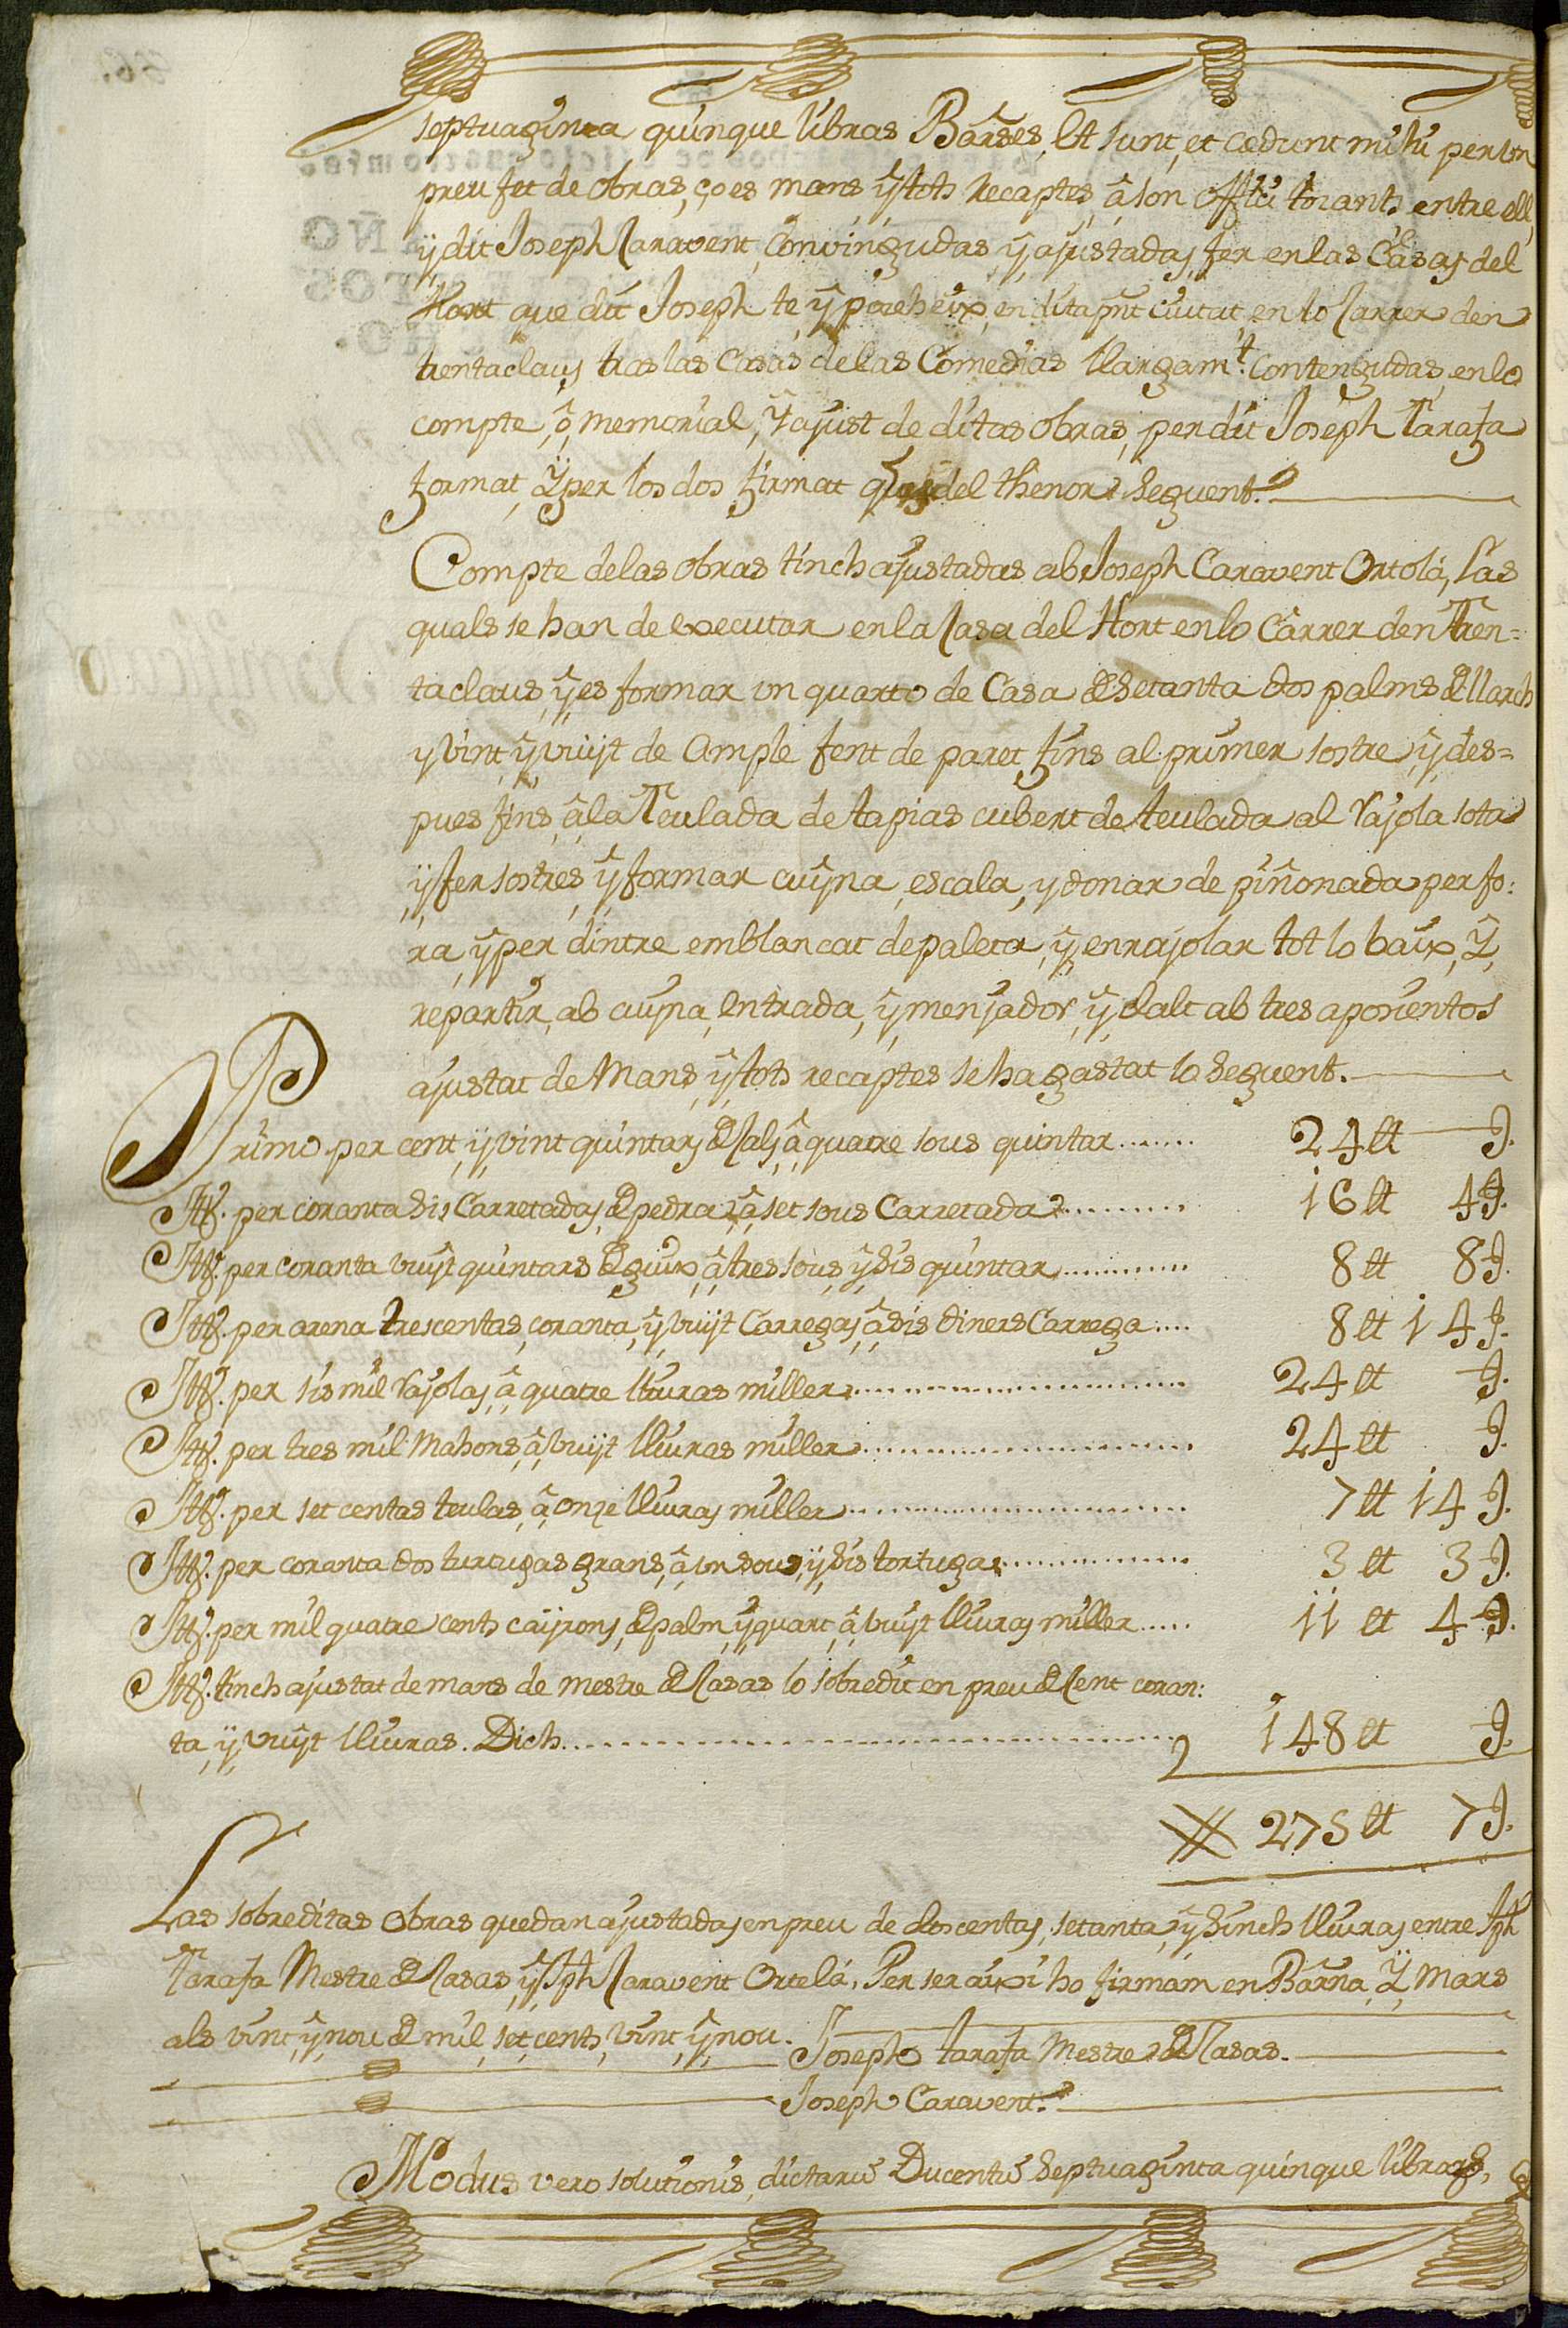 septuaginta quinque libras Barses. Et sunt, et cedunt mihi per un
preu fet de obras, ço es mans, y tots recaptes, â son offici tocants entre ell
y dit Joseph Caravent, Convingudas, y ajustadas, fer en las Casas del
Hort que dit Joseph te y poseheix, en dita pnt ciutat, en lo Carrer den
trentaclaus tras las Casas de las Comedias llargamt. Contengudas, en lo
compte, o, memorial, y ajust de ditas obras, per dit Joseph Tarafa
format, y per los dos firmat que es del thenor seguent.
Compte de las obras tinch ajustadas ab Joseph Caravent Ortolá, Las
quals se han de executar en la Casa del Hort en lo Carrer den Tren=
taclaus, y es formar un quarto de Casa de setanta dos palms de llarch
y vint, y vuyt de Ample fent de paret fins al primer sostre, y des=
pues fins, â la Teulada de tapias cubert de teulada al Rajola sota
y fer sostres, y formar cuyna, escala, y donar de piñonada per fo:
ra, y per dintre emblancat de paleta, y enrajolar tot lo baix, Y,
repartir, ab cuyna, entrada, y menjador, y dalt ab tres aposentos
ajustat de Mans, y tots recaptes se ha gastat lo seguent.
Primo per cent, y vint quintars de Cals, â quatre sous quintar....... 24 ll — s.
Itt. per coranta sis Carretadas, de pedra, â set sous Carretada......... 16 ll 4 s.
Itt. per coranta vuyt quintars de guix, â tres sous, y sis quintar.......... 8 ll 8 s.
Itt. per arena trescentas, coranta, y vuyt Carregas, â sis diners Carrega.... 8 ll 14 s.
Itt. per sis mil Rajolas, â quatre lliuras miller.................... 24 ll s.
Itt. per tres mil Mahons, â vuyt lliuras miller.................... 24 ll s.
Itt. per set centas teulas, â onze lliuras miller.................... 7 ll 14 s.
Itt. per coranta dos turtugas grans, â un sou, y sis tortuga............ 3 ll 3 s.
Itt. per mil quatre cents cayrons, de palm, y quart, â vuyt lliuras miller..... 11 ll 4 s.
Itt. tinch ajustat de mans de mestre de Casas lo sobredit en preu de Cent coran:
ta, y vuyt lliuras. Dich.................................... 148 ll s.
275 ll 7 s.
Las sobreditas Obras quedan ajustadas en preu de doscentas, setanta, y sinch lliuras entre Jph
Tarafa Mestre de Casas, y Jph Caravent Ortelá, Per ser aixi ho firmam en Barna, Y, Mars
als vint, y nou de mil, set, cents, vint, y nou. Joseph tarafa Mestre de Casas.
Joseph Caravent.
Modus vero solutionis, dictarû Ducentû Septuaginta quinque librarû,